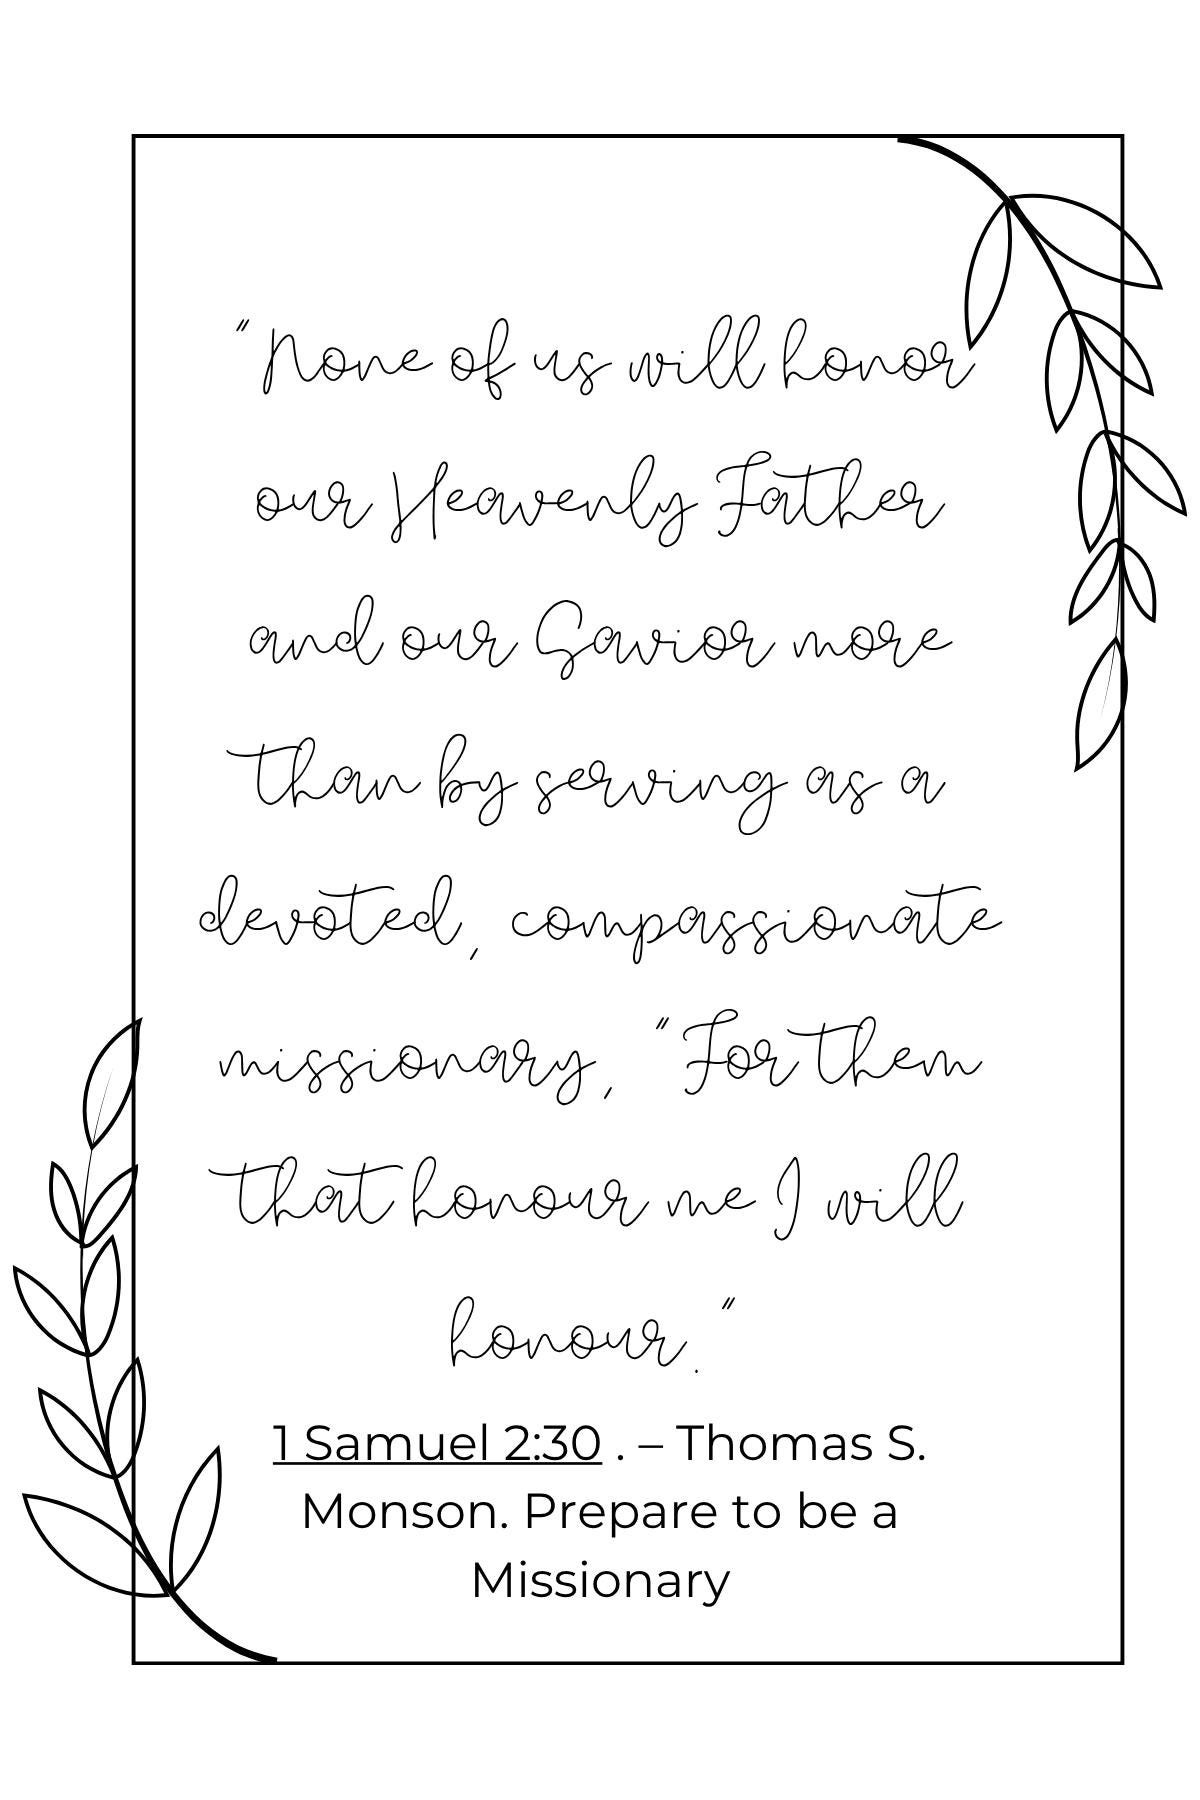 "None of us will honor
our Heavenly Father
and our Savior more
than by serving as a
devoted, compassionate
missionary, "For them
that honour me I will
honour."
1 Samuel 2:30 . – Thomas S.
Monson. Prepare to be a
Missionary